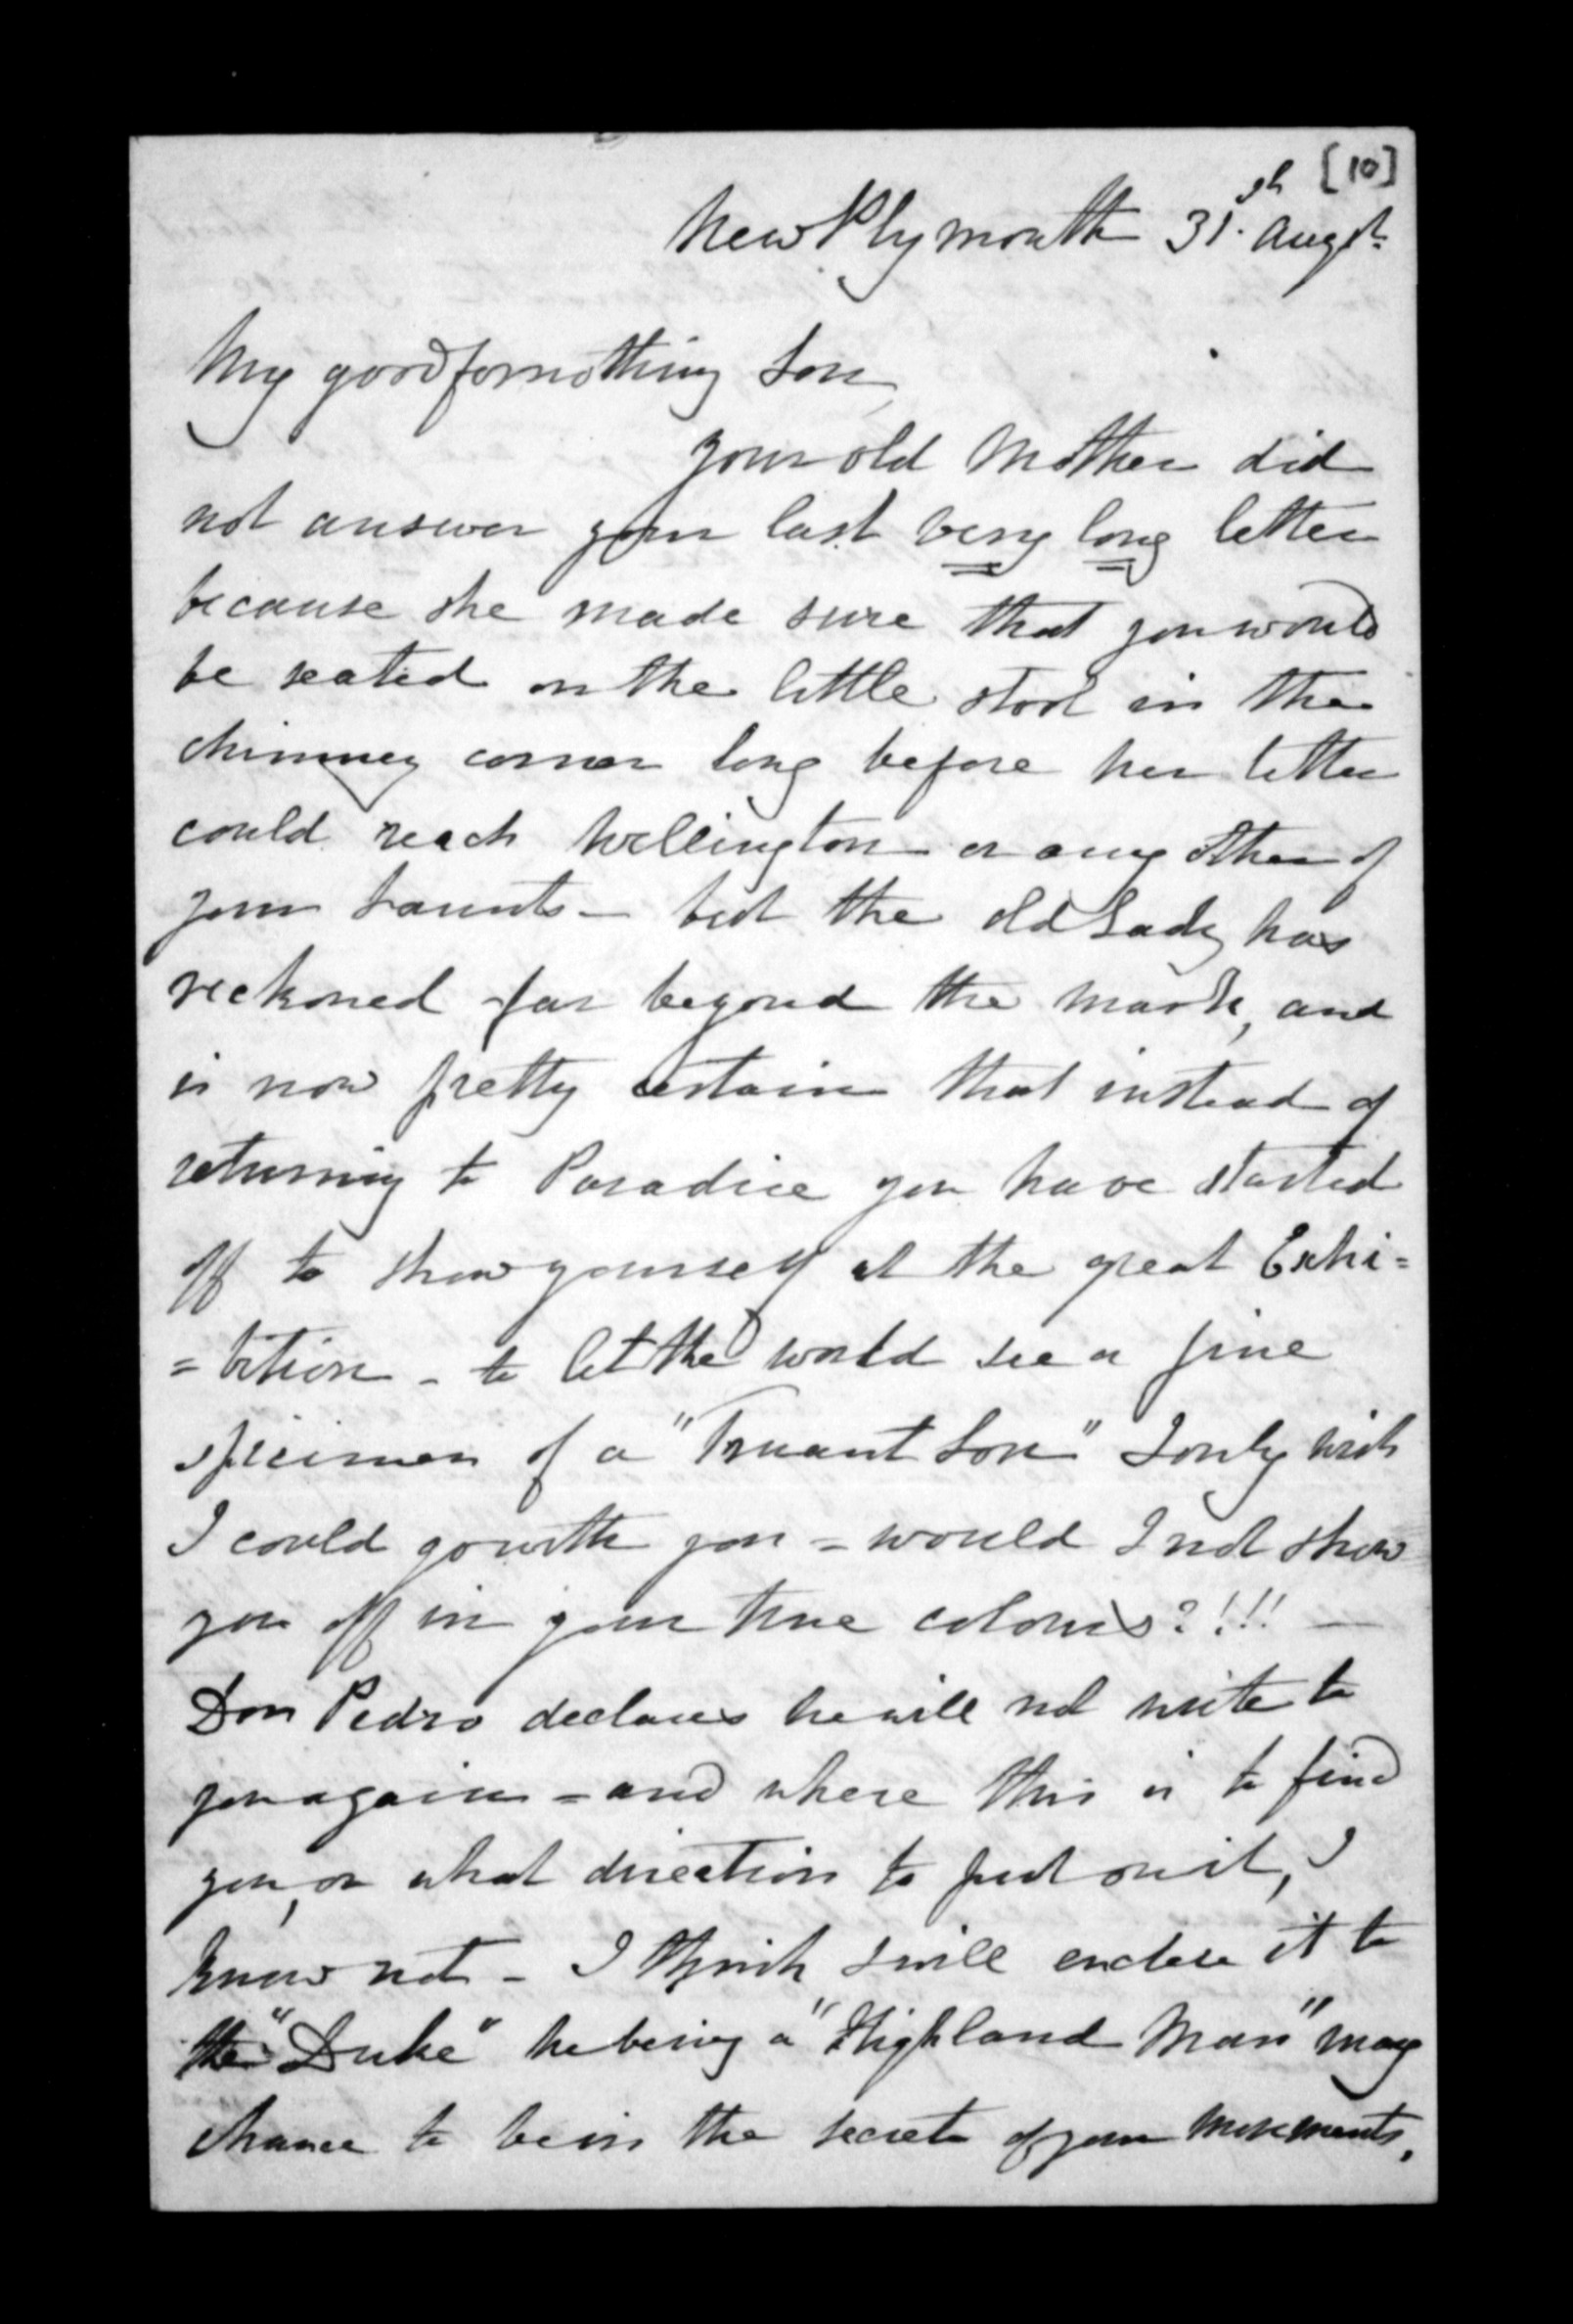 [10]
New Plymouth 31st. Augst.
My goodfornothing Son,
your old Mother did
not answer your last very long letter
because she made sure that you would
be seated on the little stool in the
chimney corner long before her letter
could reach Wellington or any other of
your haunts - but the old Lady has
reckoned far beyond the mark, and
is now pretty certain that instead of
returning to Paradise you have started
off to show yourself at the great Exhi=
=bition - to let the world see a fine
specimen of a "Truant Son" I only wish
I could go with you = would I not show
you off in your true colours?!!! —
Don Pedro declares he will not write to
you again = and where this is to find
you, or what direction to put on it, I
know not - I think I will enclose it to
the "Duke" he being a "Highland Man" may
chance to be in the secret of your movements.